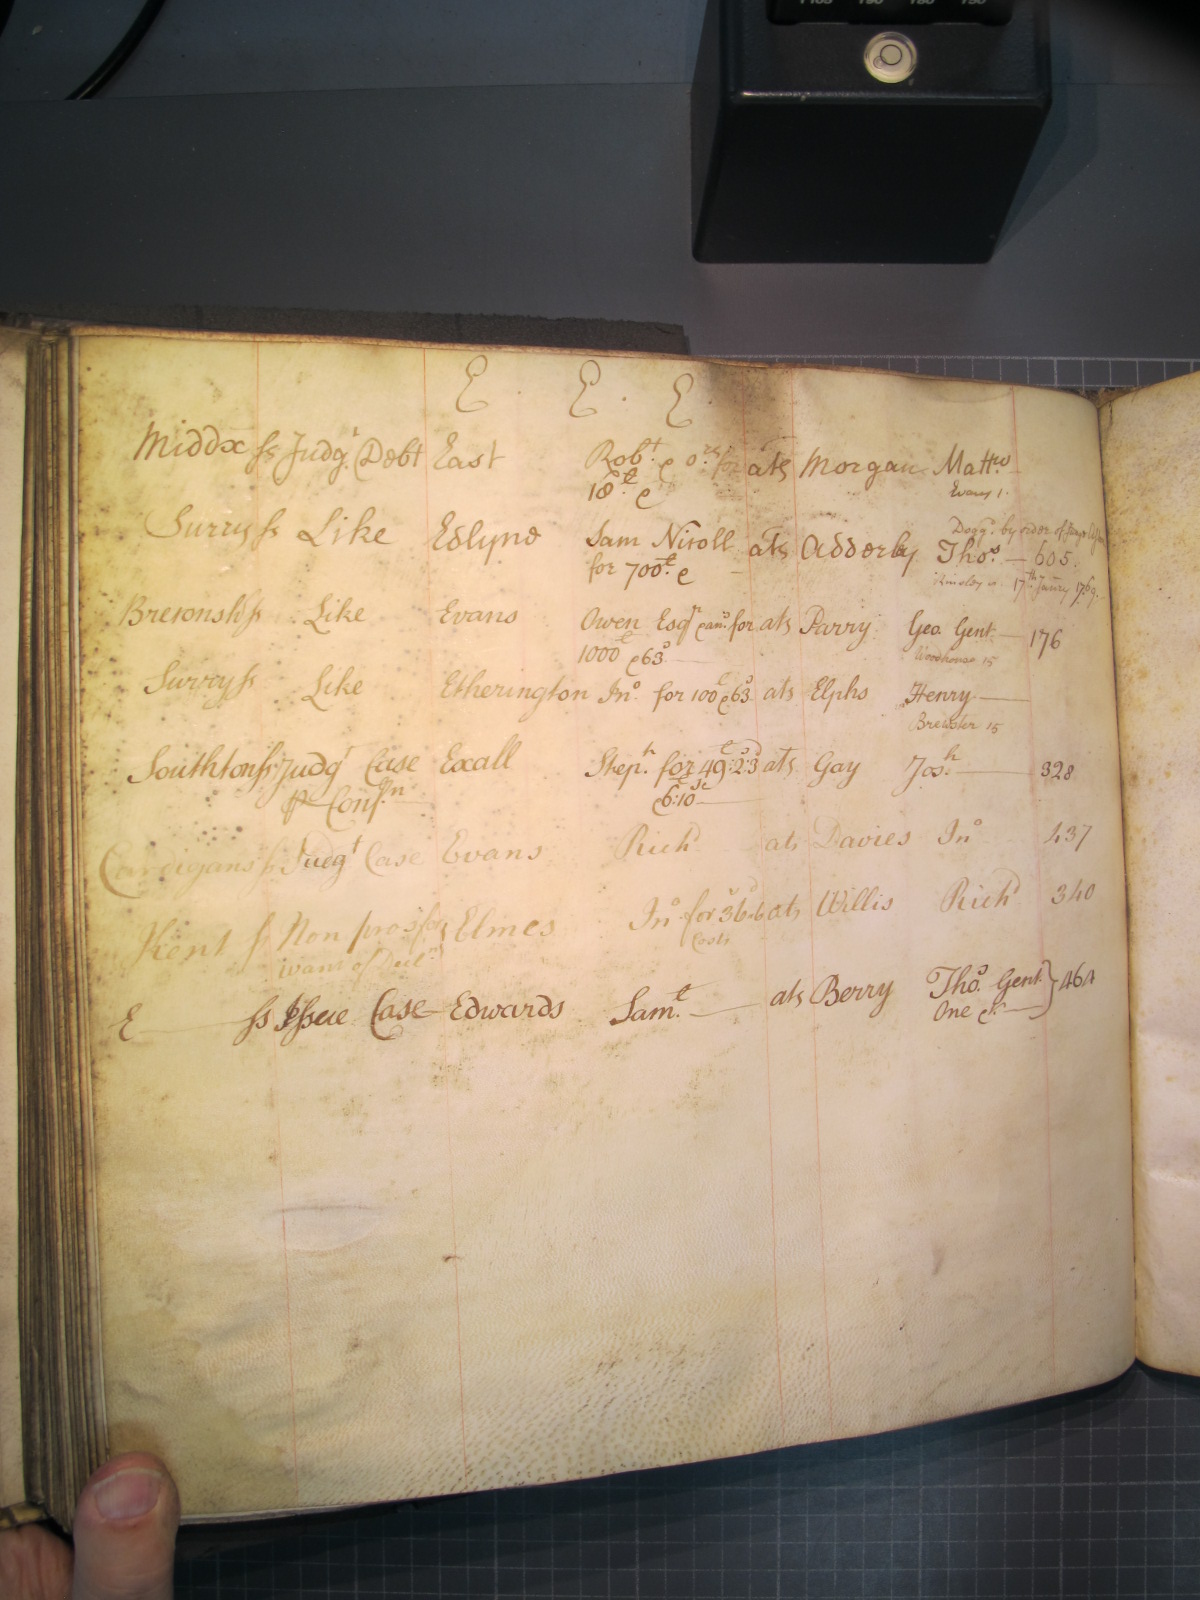 E. E. E.
Middx ss Judgt. Debt East Robt. & ors. for ats Morgan Mattw
18£. & Evans 1.
Surry ss Like Edlyne Sam Nicoll ats Adderly Thos. — 605.
Dogg. by order of
for 700£. & 17th Janry 1769.
Breconsh ss Like Evans Owen Esqr for ats Parry Geo. Gent. — 176
1000£ & 63s Woodhouse 15
Surry ss Like Etherington Jno. for 100£ & 63s ats Elphs Henry —
Brewster 15
Southton ss Judgt Case Exall Steph. for 49£:2s:3d ats Gay Josh. — 328
P Confn 6:10
Cardigans ss Judgt Case Evans Richd ats Davies Jno 437
Kent ss Non pros for Elmes Jno. for 36.6 ats Willis Richd 340
want of Decln Costs
E — ss Issue Case Edwards Saml. — ats Berry Thos. Gent. } 464
One &c —